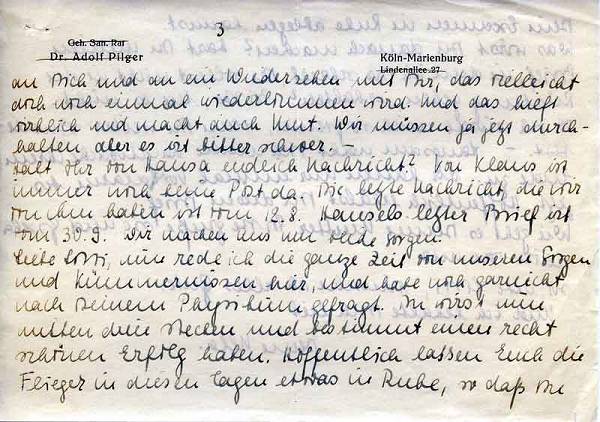 3
Geh. San. Rat
Dr. Adolf Pilger
Köln-Marienburg
Lindenallee 27
an Dich und an ein Wiedersehen mit Dir, das vielleicht
doch noch einmal wiederkommen wird. Und das hilft
wirklich und macht auch Mut. Wir müssen ja jetzt durch-
halten, aber es ist bitter schwer. –
Habt Ihr von Hansa endlich Nachricht? Von Klaus ist
immer noch keine Post da. Die letzte Nachricht, die wir
von ihm haben ist vom 12.8. Hansels letzter Brief ist
vom 30.9. Wir machen uns sorgen.
Liebe nun rede ich die ganze Zeit von unseren Sorgen
und Kümmernissen hier, und habe noch garnicht
nach Deinem Physikum gefragt. Du wirst nun
mitten drin stecken und bestimmt einen recht
schönen Erfolg haben. Hoffentlich lassen Euch die
Flieger in diesen Tagen etwas in Ruhe, so daß Du